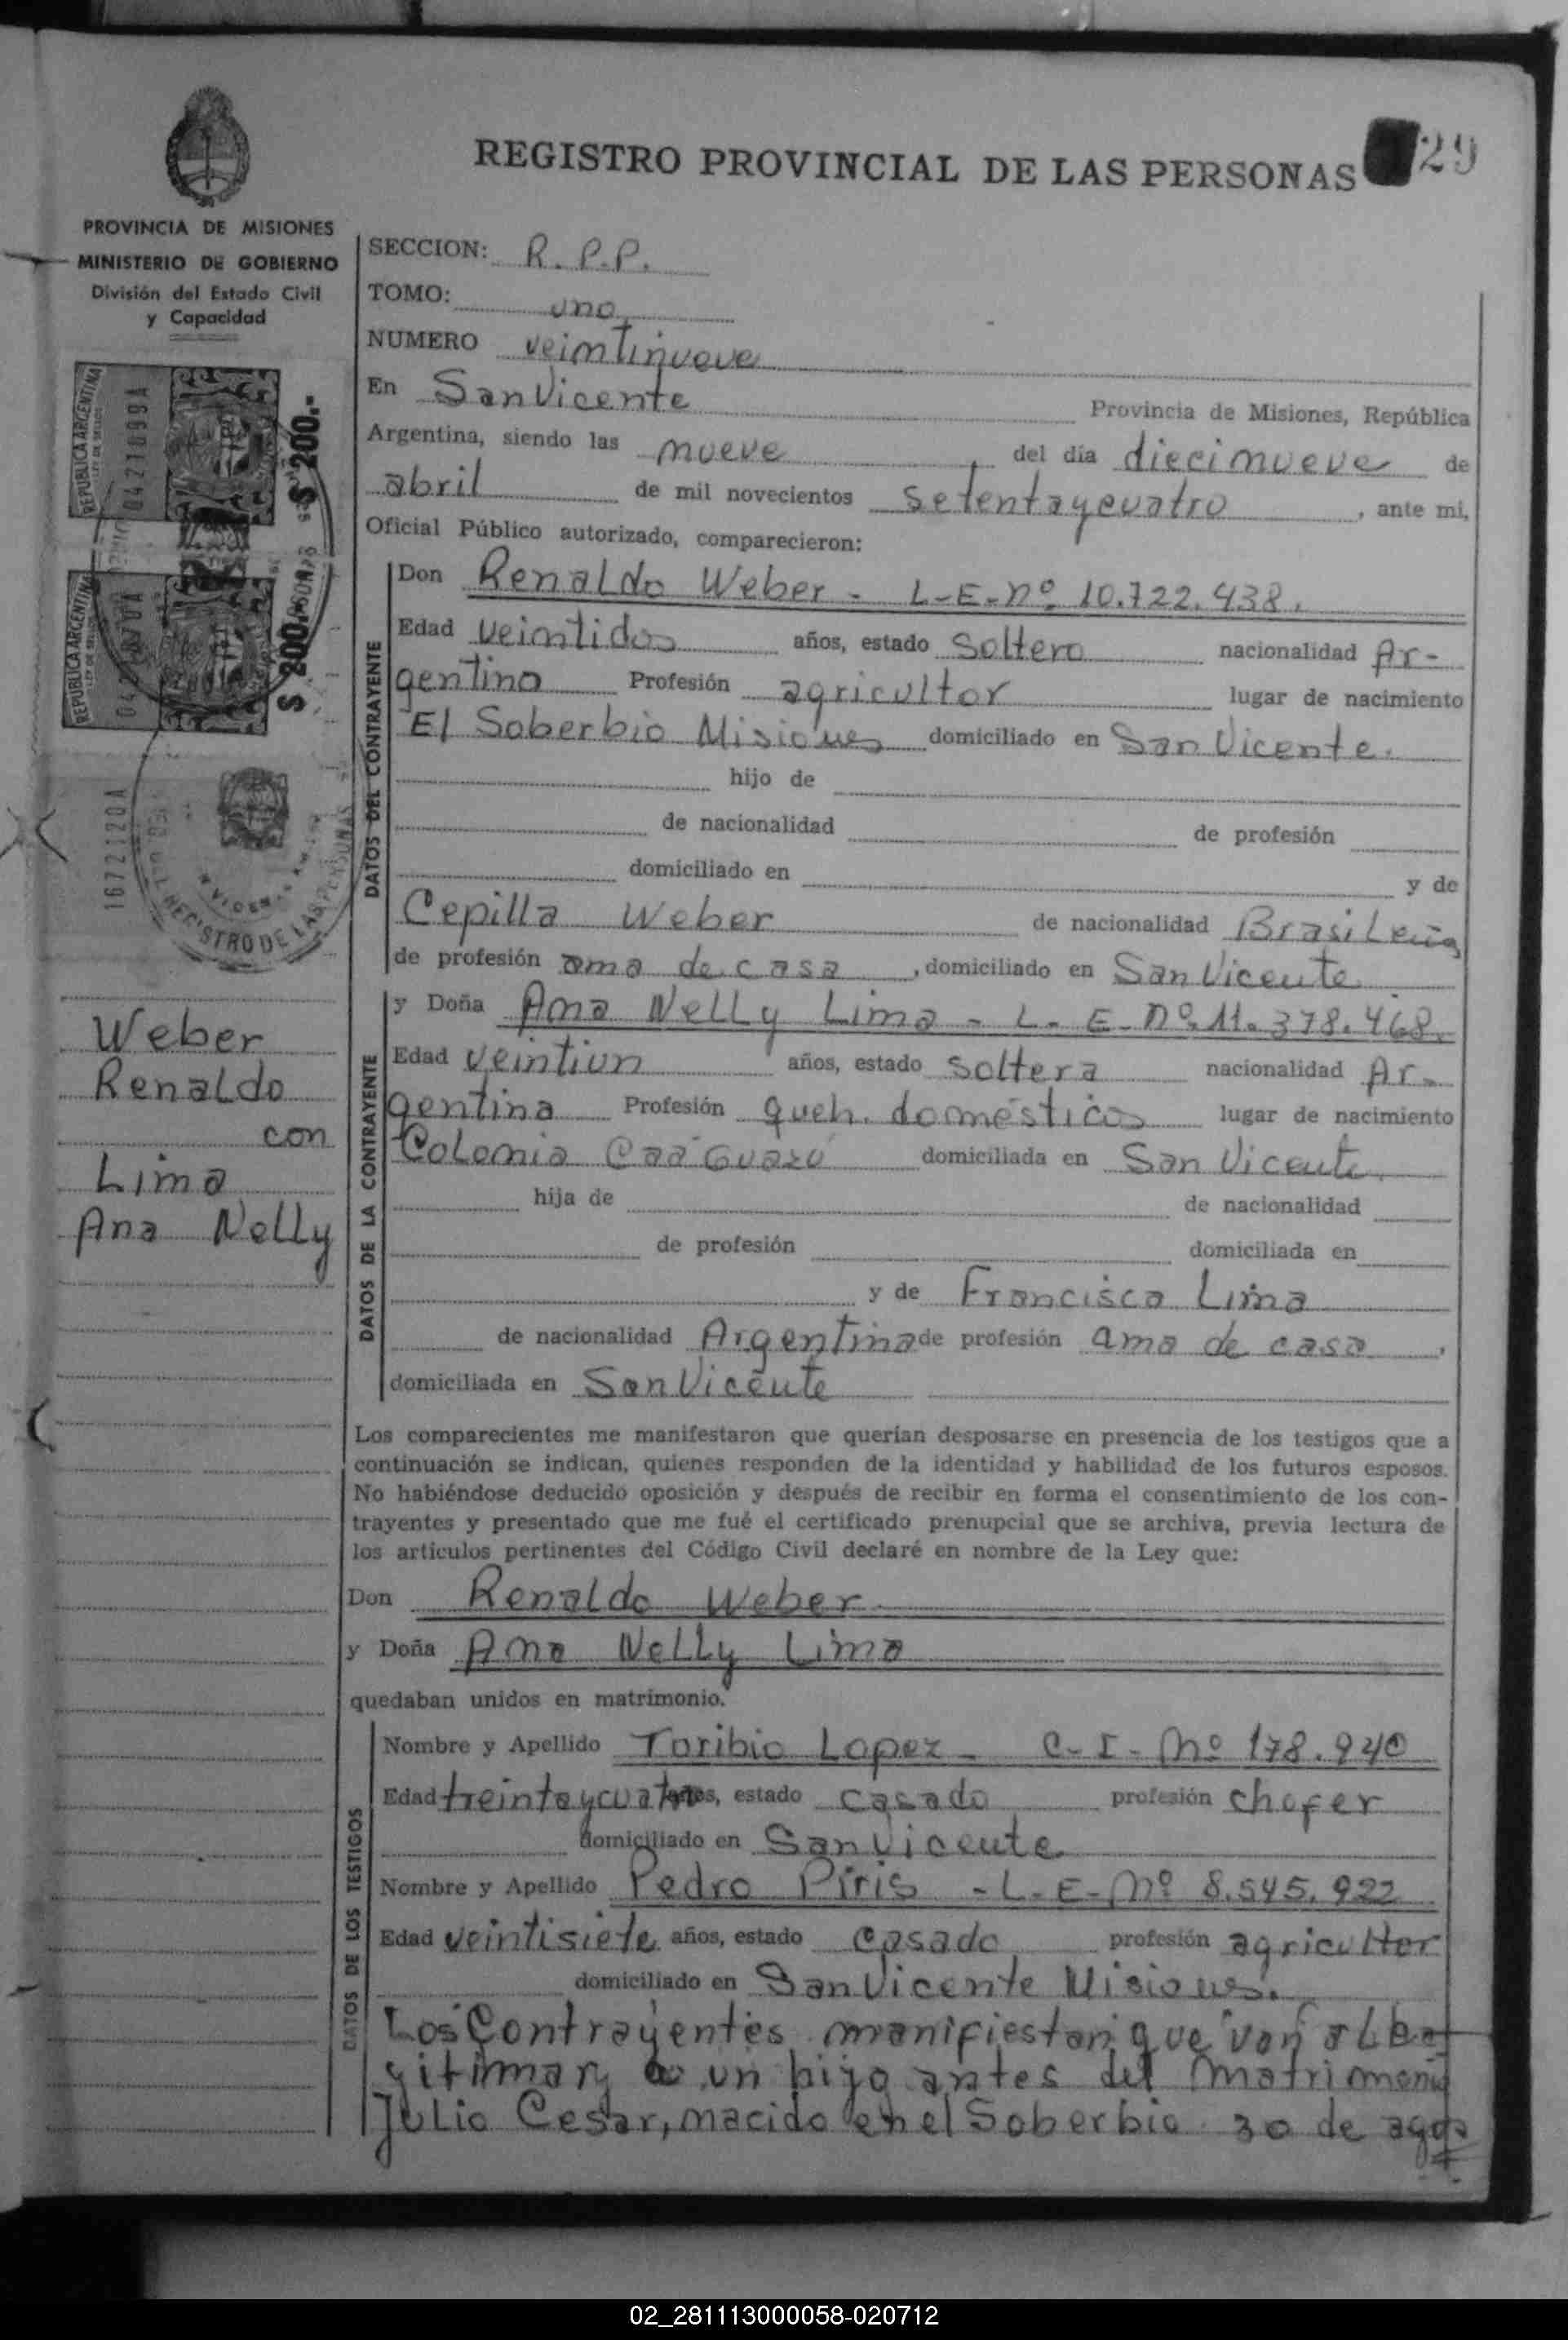 REGISTRO PROVINCIAL DE LAS PERSONAS 29
PROVINCIA DE MISIONES
MINISTERIO DE GOBIERNO
División del Estado Civil
y Capacidad
REPUBLICA ARGENTINA
LEY DE SELLOS
0421099A
$ 200.-
REPUBLICA ARGENTINA
LEY DE SELLOS
$ 200.-
1672120A
REGISTRO DE LAS PERSONAS
Weber
Renaldo
con
Lima
Ana Nelly
SECCION: R. P.P.
TOMO: uno
NUMERO veintinueve
En San Vicente Provincia de Misiones, República
Argentina, siendo las nueve, del día diecinueve de
abril de mil novecientos setentaycuatro, ante mi,
Oficial Público autorizado, comparecieron:
DATOS DEL CONTRAYENTE
Don Renaldo Weber - L-E-nº 10.722.438.
Edad veintidos años, estado Soltero nacionalidad Ar-
gentino Profesión agricultor lugar de nacimiento
El Soberbio Misiones domiciliado en San Vicente.
hijo de
de nacionalidad de profesión
domiciliado en y de
Cepilla Weber de nacionalidad Brasileña
de profesión ama de casa, domiciliado en San Vicente
DATOS DE LA CONTRAYENTE
y Doña Ana Nelly Lima - L- E- nº 11.378.468.
Edad veintiun años, estado soltera nacionalidad Ar-
gentina Profesión queh. domésticos lugar de nacimiento
Colonia Caá Guazú domiciliada en San Vicente.
hija de de nacionalidad
de profesión domiciliada en
y de Francisca Lima
de nacionalidad Argentina de profesión ama de casa,
domiciliada en San Vicente
Los comparecientes me manifestaron que querían desposarse en presencia de los testigos que a
continuación se indican, quienes responden de la identidad y habilidad de los futuros esposos.
No habiéndose deducido oposición y después de recibir en forma el consentimiento de los con-
trayentes y presentado que me fué el certificado prenupcial que se archiva, previa lectura de
los artículos pertinentes del Código Civil declaré en nombre de la Ley que:
Don Renaldo Weber
y Doña Ana Nelly Lima
quedaban unidos en matrimonio.
DATOS DE LOS TESTIGOS
Nombre y Apellido Toribio Lopez - C-I- Nº 178.940
Edad treintaycuatro años, estado casado profesión chofer
domiciliado en San Vicente
Nombre y Apellido Pedro Piris - L-E-Nº 8.545.922
Edad veintisiete años, estado casado profesión agricultor
domiciliado en San Vicente Misiones.
Los Contrayentes manifiestan que van a Le
gitimar a un hijo antes del matrimonio
Julio Cesar, nacido en el Soberbio 30 de agos
02_281113000058-020712